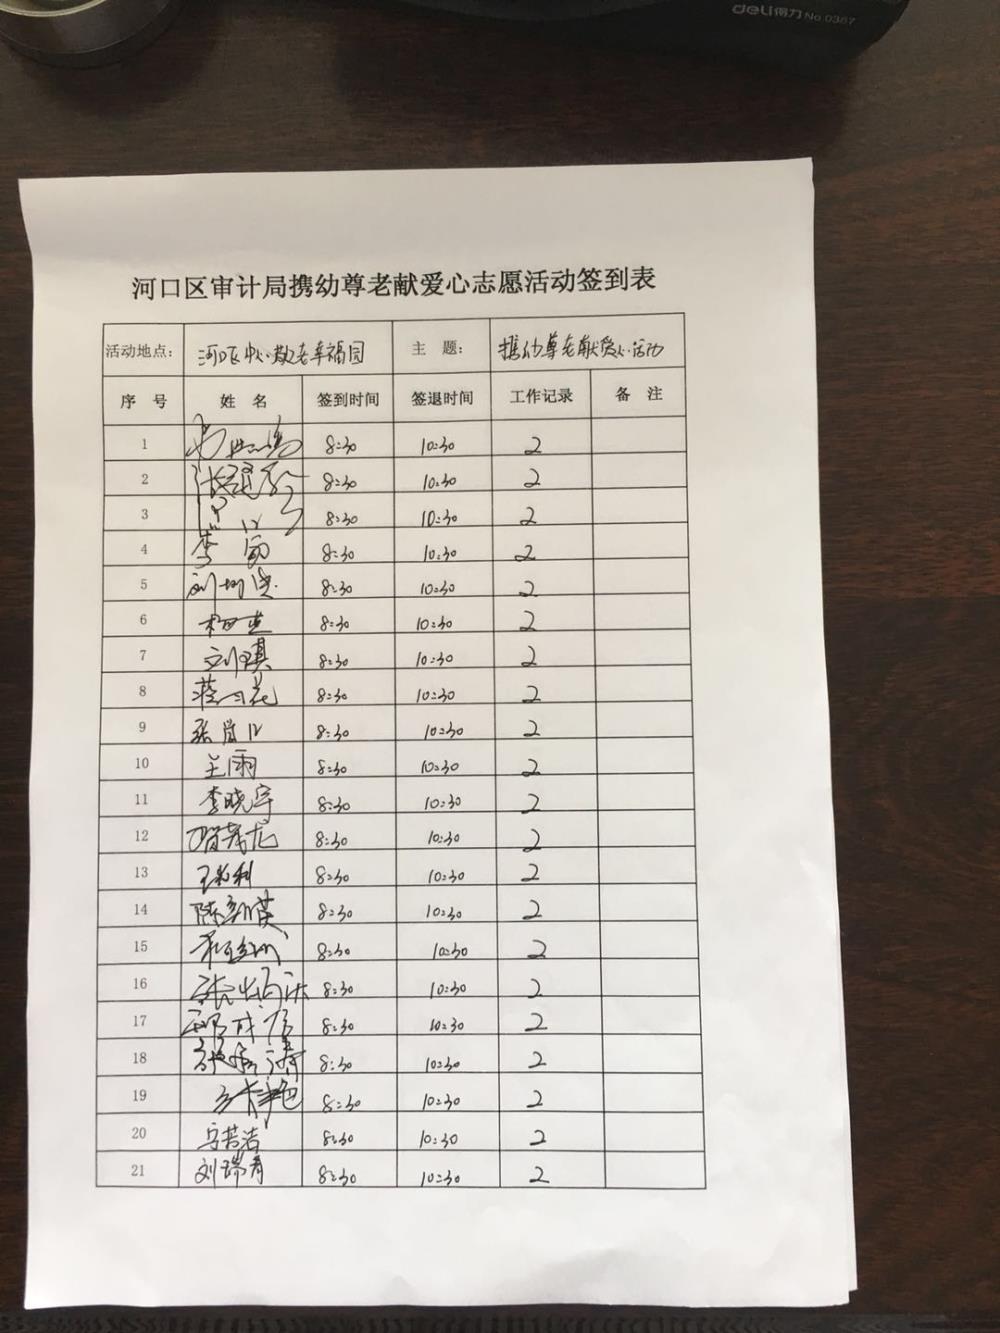 deli得力 No.0387
河口区审计局携幼尊老献爱心志愿活动签到表
活动地点: 河口区中心敬老幸福园 主 题: 携幼尊老献爱心活动
序 号 姓 名 签到时间 签退时间 工作记录 备 注
1 8:30 10:30 2
2 8:30 10:30 2
3 8:30 10:30 2
4 8:30 10:30 2
5 8:30 10:30 2
6 8:30 10:30 2
7 刘琪 8:30 10:30 2
8 8:30 10:30 2
9 8:30 10:30 2
10 王雨 8:30 10:30 2
11 李晓宇 8:30 10:30 2
12 8:30 10:30 2
13 8:30 10:30 2
14 8:30 10:30 2
15 8:30 10:30 2
16 8:30 10:30 2
17 8:30 10:30 2
18 8:30 10:30 2
19 8:30 10:30 2
20 马若洁 8:30 10:30 2
21 刘瑞青 8:30 10:30 2